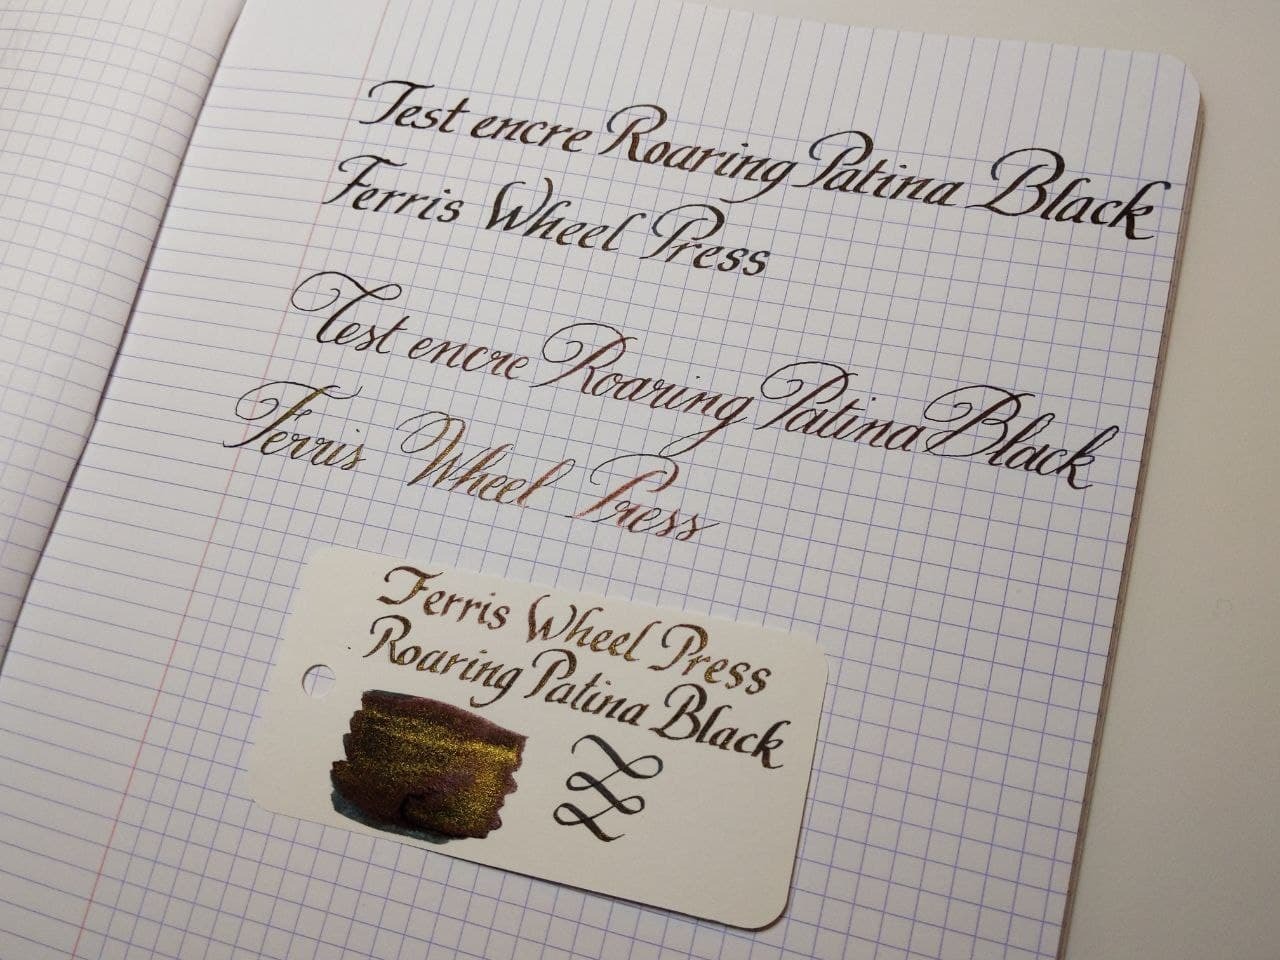 Test encre Roaring Patina Black
Ferris Wheel Press
Test encre Roaring Patina Black
Ferris Wheel Press
Ferris Wheel Press
Roaring Patina Black